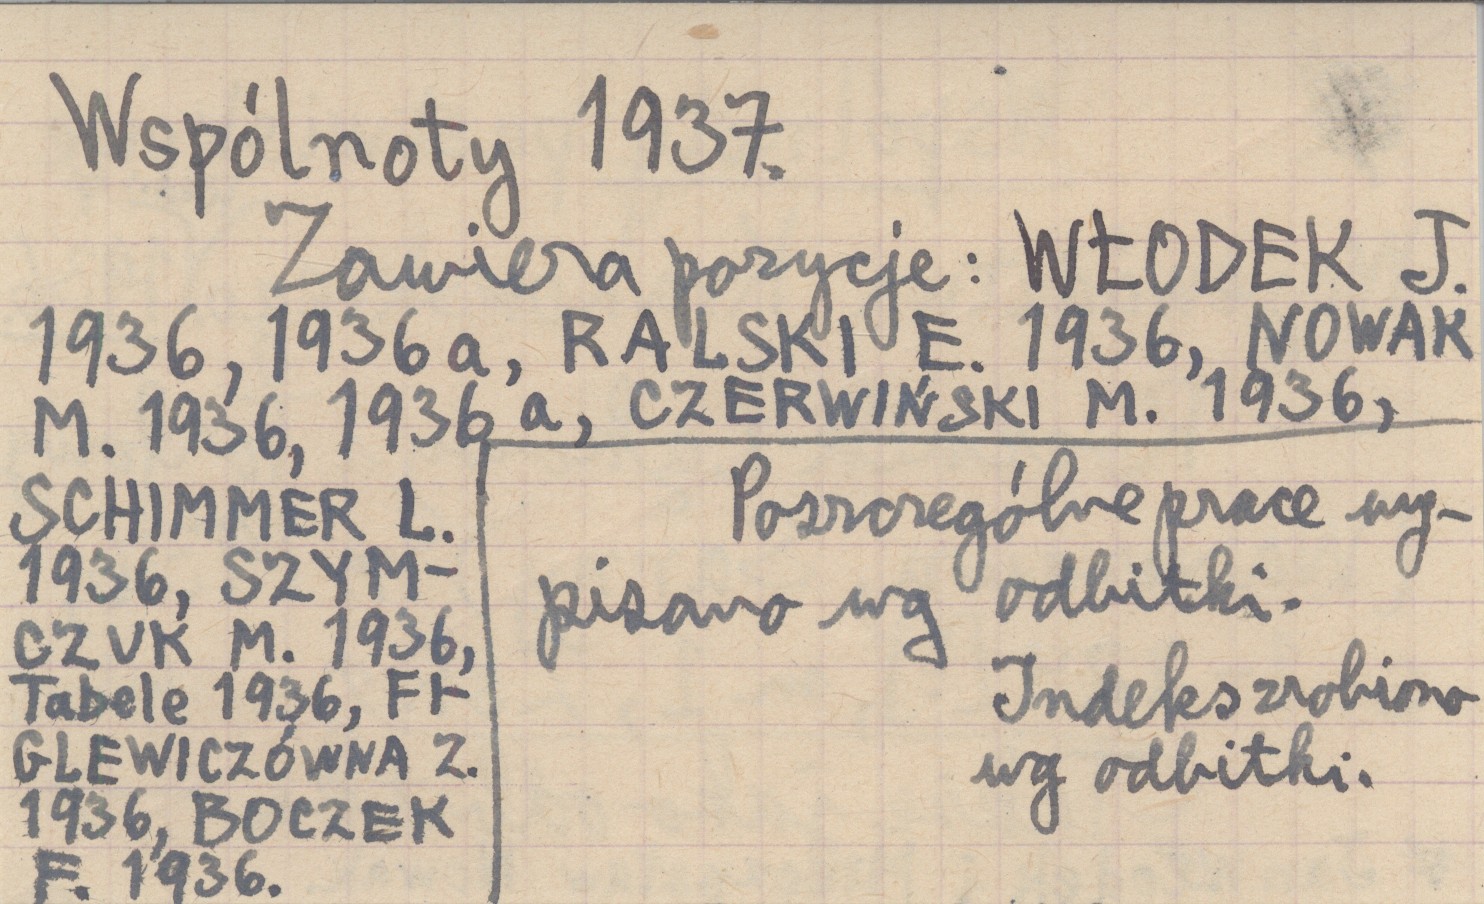 Wspólnoty 1937.
Zawiera pozycje: WŁODEK J.
1936, 1936a, RALSKI E. 1936, NOWAK
M. 1936, 1936a, CZERWIŃSKI M. 1936,
SCHIMMER L.
1936, SZYM-
CZUK M. 1936,
Tabele 1936, FI-
GLEWICZÓWNA Z.
1936, BOCZEK
F. 1936.
Poszczególne prace wy-
pisano wg odbitki.
Indeks zrobiono
wg odbitki.